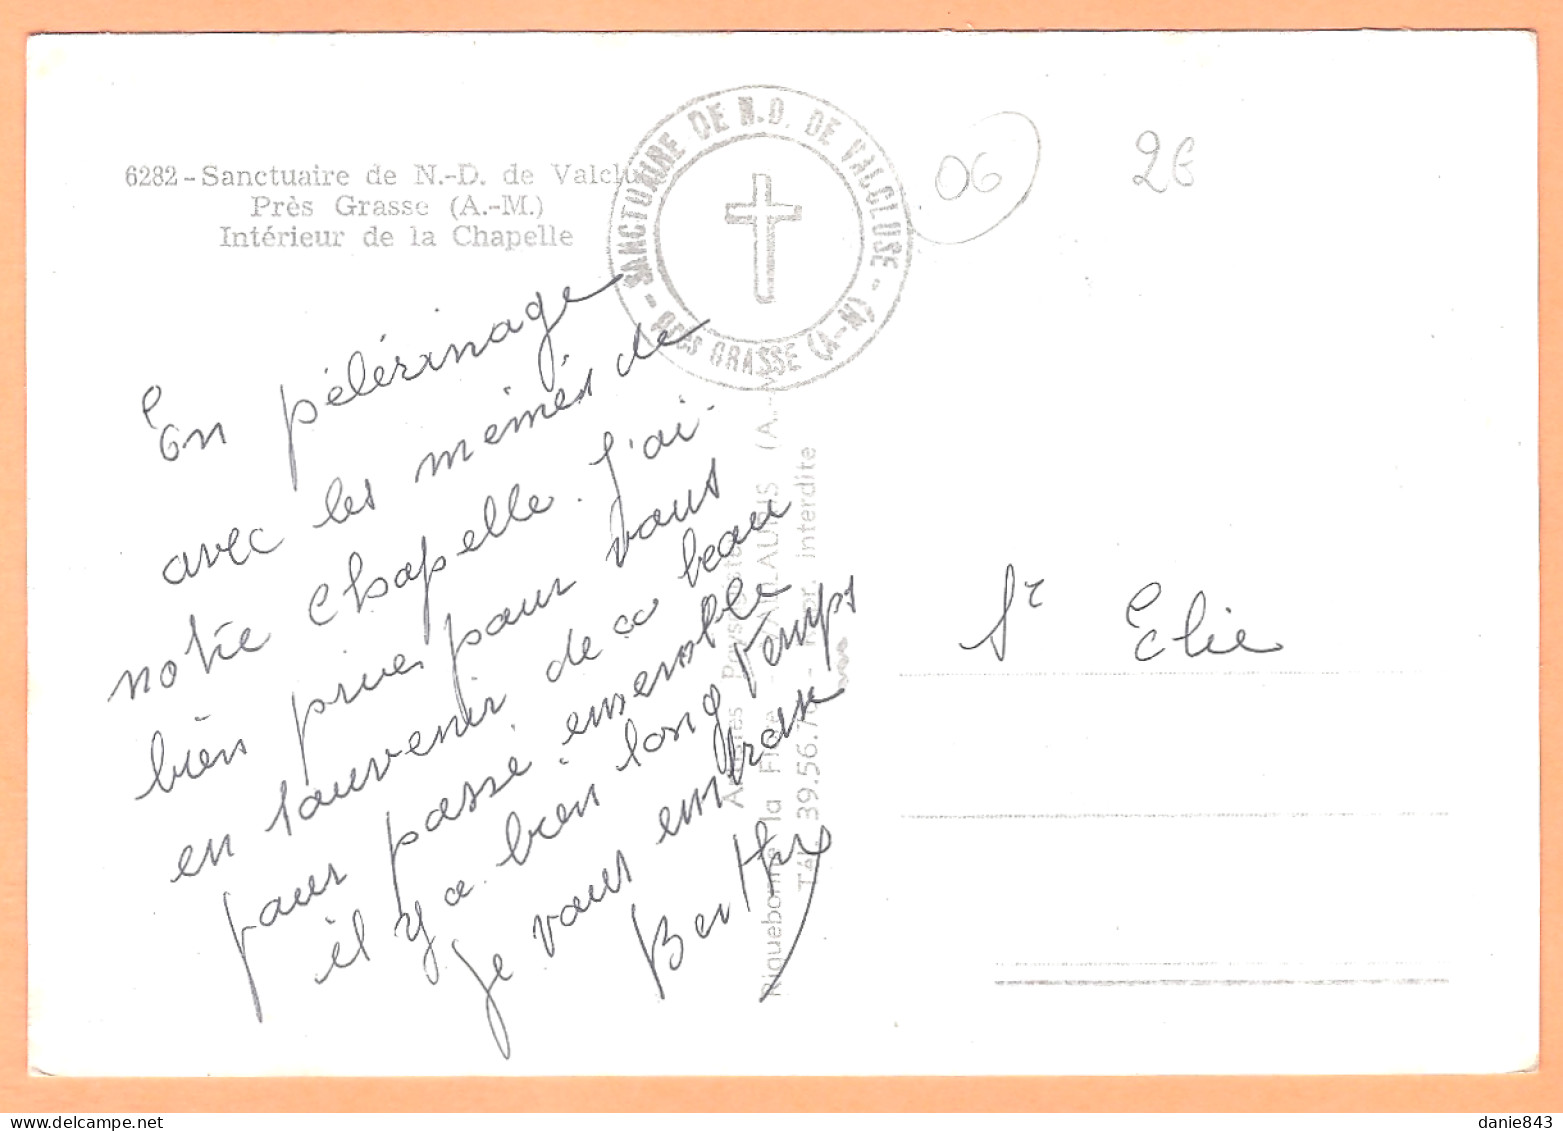 6282 - Sanctuaire de N.-D. de Valclu
Près Grasse (A.-M.)
Intérieur de la Chapelle
SANCTUAIRE DE N.D. DE VALCLUSE
- PRES GRASSE (A-M) -
06
2€
En pélérinage
avec les mémés de
notre chapelle. J'ai
bien priée pour vous
en souvenir de ce beau
jour passé ensemble
il y a bien long temps
Je vous embrasse
Berthe
Riquebonne la
VALLAURIS (A.-M
Tél. 39.56.7
Repr. interdite
St Elie
delcampe.net
danie843